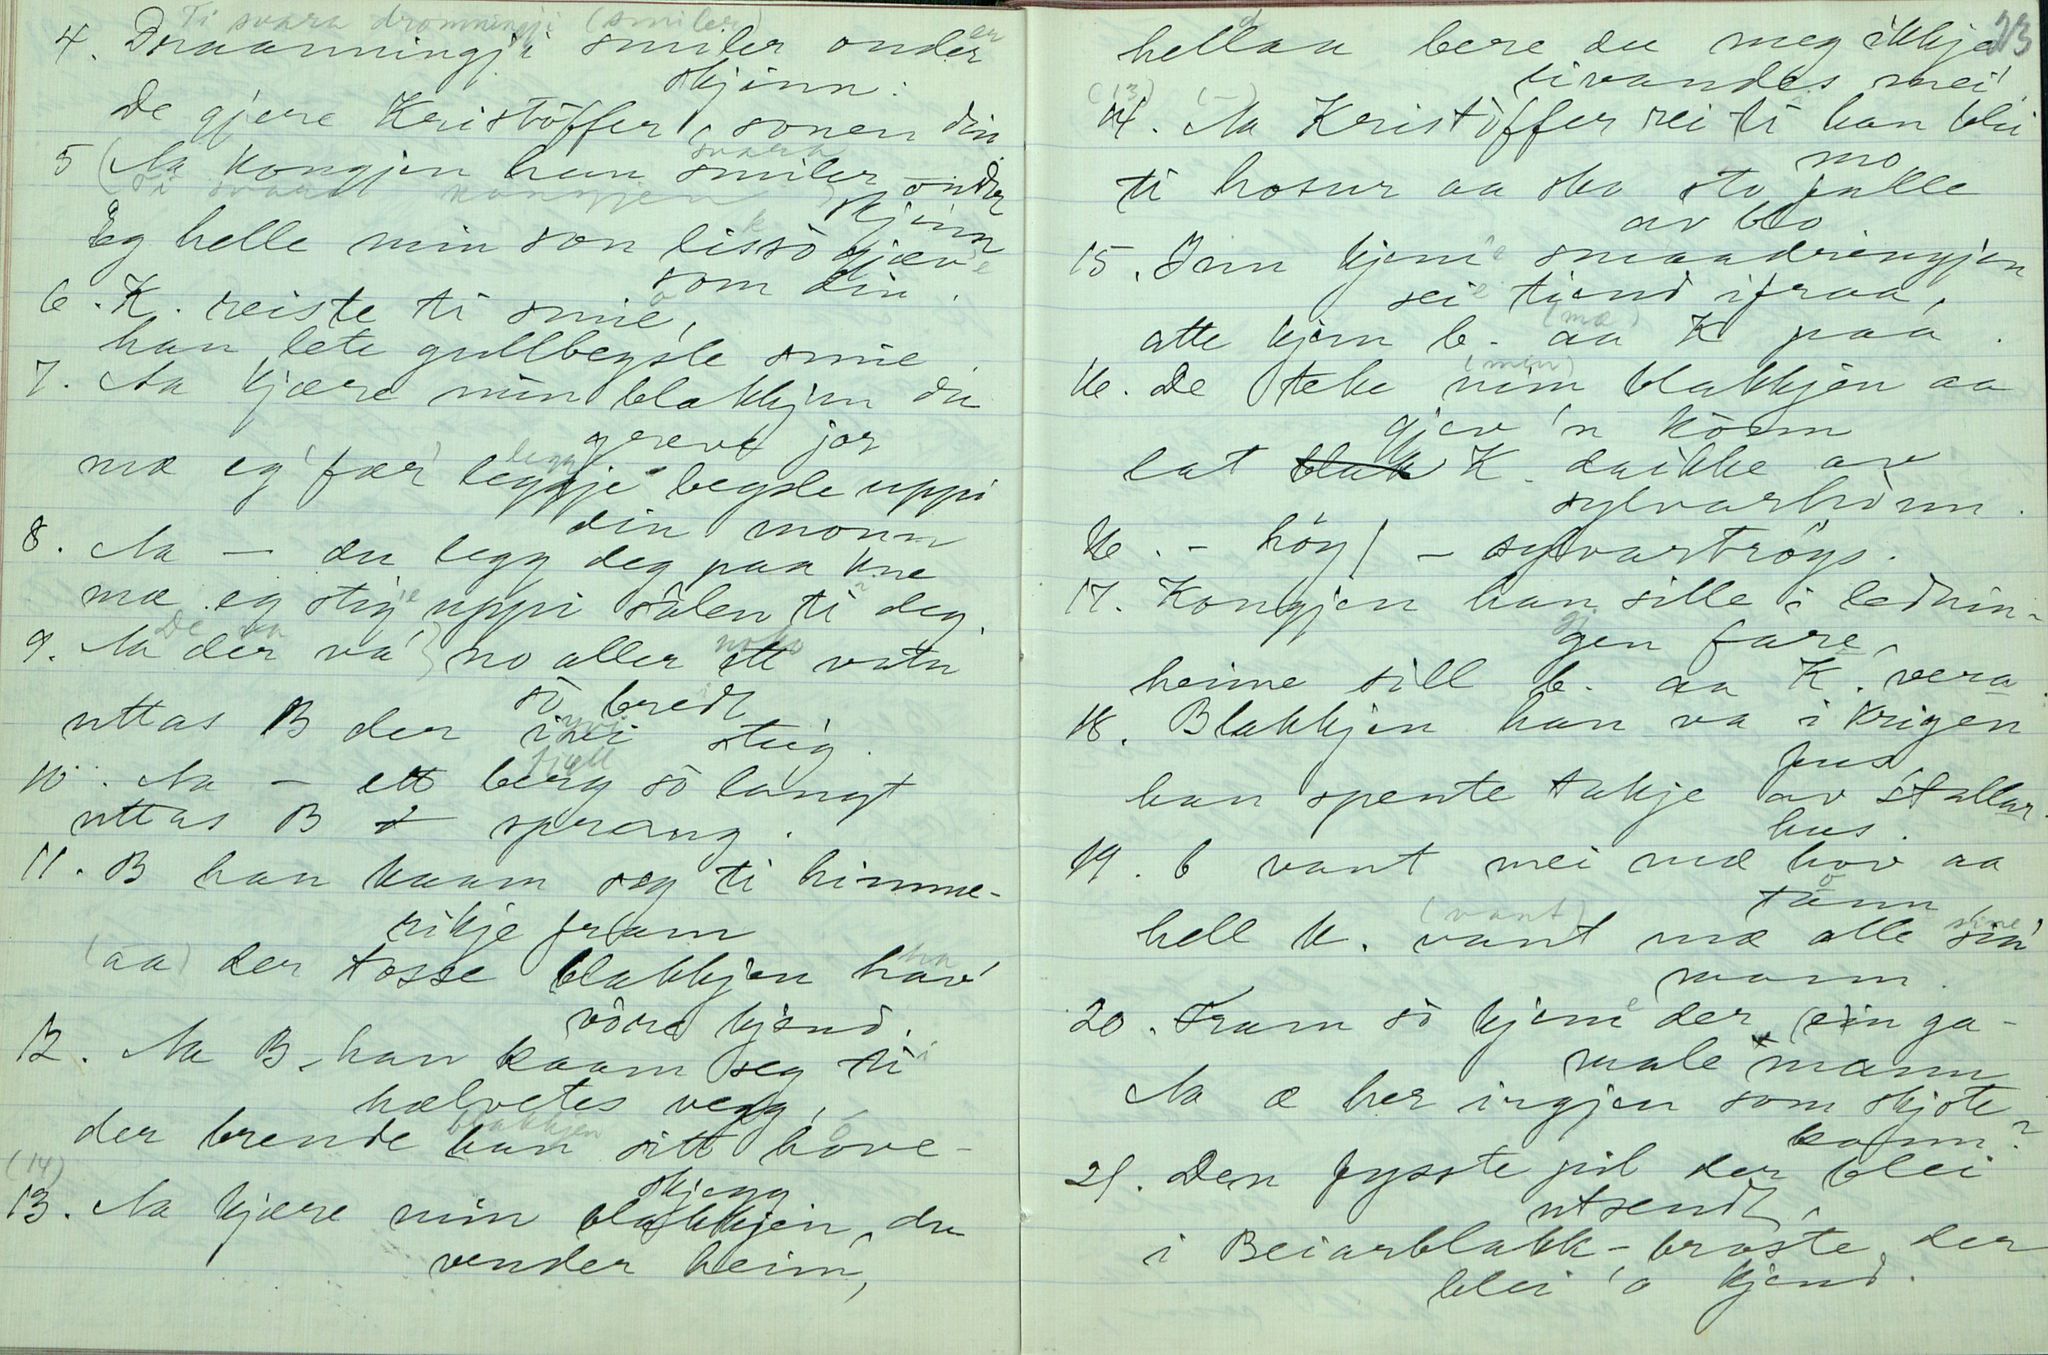 Ti svara dronningji (smiler)
4. Draanningji smiler onder er
skjinn:
De gjere Kristöffer, sonen din.
svara
5 (Aa kongjen han smiler onder
Ti svara kongjen skjinn
Eg helle min son lissö gjæv e
som din.
6. K. reiste ti smie,
han lete gullbeysle smie.
7. Aa kjære min blakkjen du
greve jor
legg
mæ eg fær leggje beysle uppi
din monn
8. Aa — du legg deg paa kne
mæ eg stig e uppi sålen ti deg.
De va noko
9. Aa der va } no aller ett vatn
så bredt
yvi
uttas B der inni steig.
fjell
10. Aa — ett berg sö langt
uttas B sprang.
11. B han kaam seg ti himme-
rikje fram
(aa) der tosse blakkjen hav' ha
vöre kjend.
12. Aa B, han kaam seg ti i
hælvetes vegg,
blakkjen
der brende han sitt hove-
skjegg
(14)
13. Aa kjære min blakkjen, du
vender heim,
23
d
hellaa bere du meg ikkje
livandes mei'
(13) (-)
14. Aa Kristöffer rei ti han blei
mo
ti hosur aa sko sto fulle
av blo
15. Inn kjem e smaadrengjen
sei e tiend ifraa,
(mæ)
atte kjem b. aa K paa.
(min)
16. De teke min blakkjen aa
gjev 'n kören
lat K. drikke av
sylvarhönn.
16. - höy / - sylvartrögs.
17. Kongjen han sille i lednin-
gj
gen fare,
heime sill b. aa K. vera.
18. Blakkjen han va i krigen
fus
han spente takje av stallar-
hus.
19. b vant mei mæ hov aa
tönn,
(vant) sine
hell k. vant mæ alle sin
mann.
20. Fram sö kjem e der (ein ga-
male mann
Aa æ her ingjen som skjote
kann?
21. Den fysste pil der blei
utsendt,
i Beiarblakk-broste, der
blei 'o kjend.